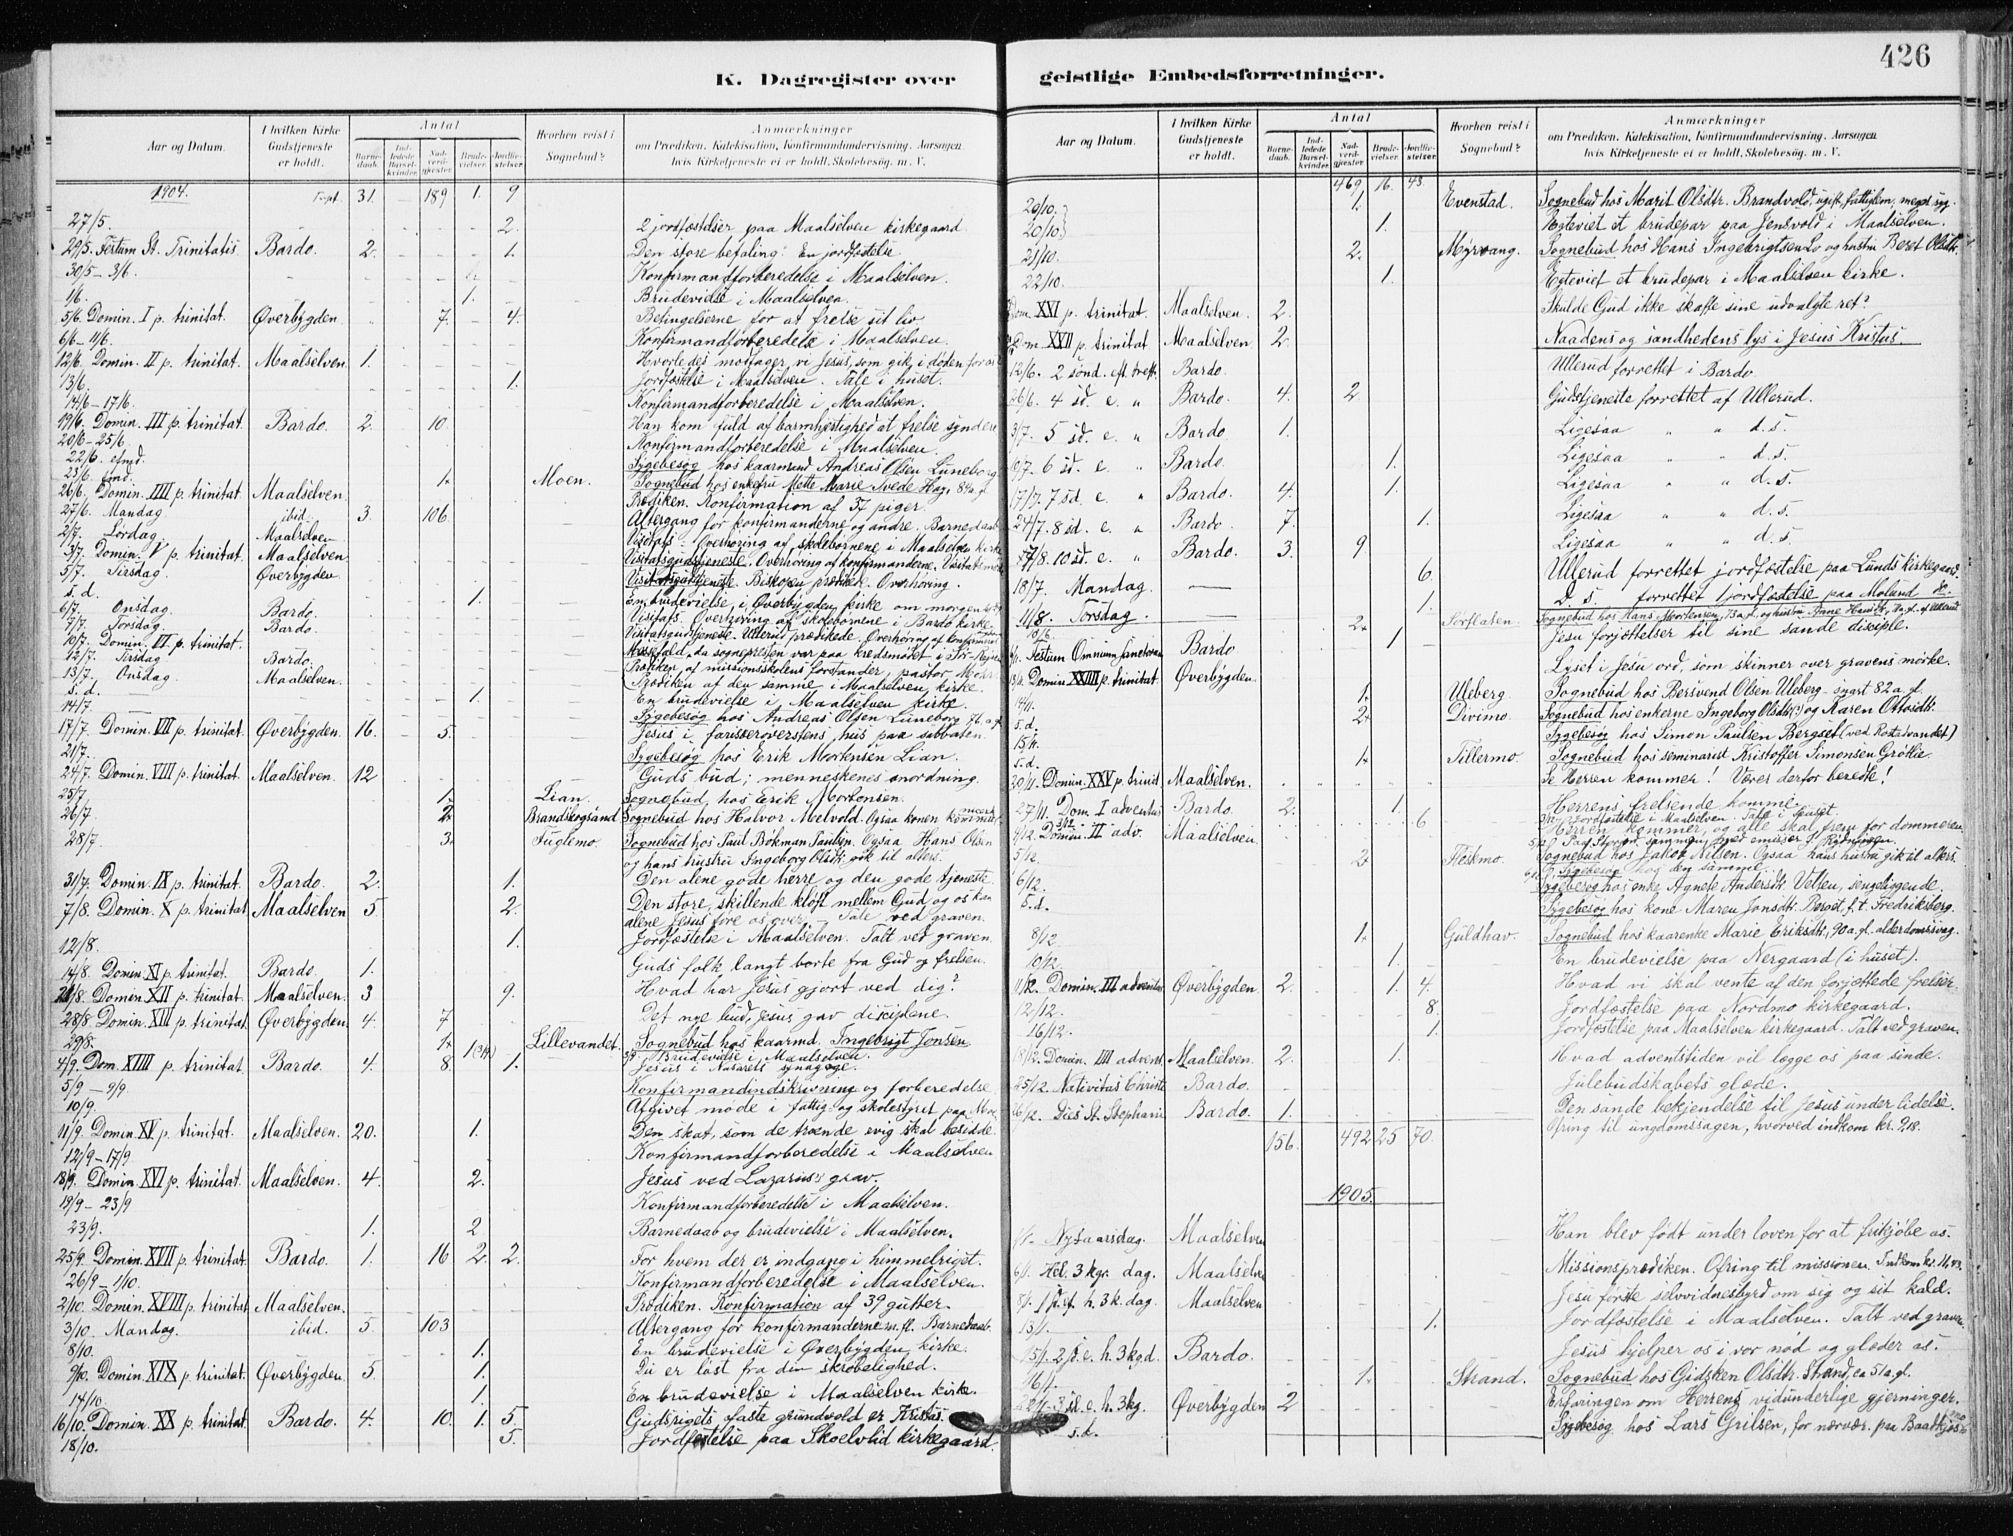 426
K. Dagregister over geistlige Embedsforretninger.
Aar og Datum. I hvilken Kirke Gudstjeneste er holdt. Antal Barnedaab. Indledede Barselkvinder. Nadverdgjester Brudevielser. Jordfæstelser. Hvorhen reist i Sognebud? Anmærkninger om Prædiken, Katekisation, Konfirmandundervisning, Aarsagen hvis Kirketjeneste ei er holdt, Skolebesøg, m. V.
1904. Tspt. 31. 189 1. 9
27/5. 2. 2 jordfæstelser paa Maalselven kirkegaard.
29/5. Festum St. Trinitatis Bardo. 2. 1. Den store befaling. En jordfæstelse.
30/5 - 3/6. Konfirmandforberedelse i Maalselven.
1/6. 1. Brudevielse i Maalselven.
5/6. Domin. I p. trinitat. Øverbygden 7. 4. Betingelserne for at frelse sit liv.
6/6 - 11/6. Konfirmandforberedelse i Maalselven.
12/6. Domin. II p. trinitat. Maalselven 1. Hvorledes modtager vi Jesus, som gik i døden for os
13/6. 1. Jordfæstelse i Maalselven. Tale i huset.
14/6 - 17/6. Konfirmandforberedelse i Maalselven.
19/6. Domin. III p. trinitat. Bardo. 2. 10. Han kom fuld af barmhjertighed at frelse syndere
20/6 - 25/6. Konfirmandforberedelse i Maalselven.
22/6. efmd. Sygebesøg hos kaarmand Andreas Olsen Luneborg
23/6. fmd. 1. Moen. Sognebud hos enkefru Mette Marie Tvede Hag, 84 a. gl.
26/6. Domin. IIII p. trinitat. Maalselven. Prædiken. Konfirmation af 37 piger.
27/6. Mandag ibid. 3. 106. Altergang for konfirmanderne og andre. Barnedaab
2/7. Lørdag. Maalselven Visitats. Overhøring af skolebørnene i Maalselven kirke
3/7. Domin. V p. trinitat. Maalselven. Visitatsgudstjeneste. Overhøring af konfirmanderne.
5/7. Tirsdag Øverbygden. Visitatsgudstjeneste. Biskopen prækede. Overhøring.
s. d. 1. En brudevielse i Øverbygden kirke om morgenen
6/7. Onsdag Bardo. Visitats. Overhøring af skolebørnene i Bardo kirke
7/7. Torsdag. Bardo. Visitatsgudstjeneste. Ullerud prædikede. Overhøring af konfirmander
10/7. Domin. VI p. trinitat. Messefald, da sognepresten var paa kredsmødet i
12/7. Tirsdag Bardo. Prædiken af missionsskolens forstander, pastor
13/7. Onsdag Maalselven. Prædiken af den samme i Maalselven kirke.
s. d. 1. En brudevielse i Maalselven kirke.
14/7. Sygebesøg hos Andreas Olsen Luneborg 76 a. gl.
17/7. Domin. VII p. trinitat. Øverbygden. 16. 5. Jesus i farisæeroverstens hus paa sabbaten.
21/7. Sygebesøg hos Erik Mortensen Lian.
24/7. Domin. VIII p. trinitat. Maalselven. 12 Guds bud; menneskenes anordning.
25/7. 1. Lian. Sognebud hos Erik Mortensen.
26/7. 2. Brandskogsand Sognebud hos Halvor Moelvold. Ogsaa konen
28/7. 3. Fuglemo. Sognebud hos Paul Bökman Paulsen. Ogsaa Hans Olsen
og hans hustru Ingeborg Olsdtr. gik til alters.
31/7. Domin. IX p. trinitat. Bardo. 2. 1. Den alene gode herre og den gode tjeneste
7/8. Domin. X p. trinitat. Maalselven 5. 2. Den store, skillende kløft mellem Gud og os kan
alene Jesus føre os over. - Tale ved graven.
12/8. 1. Jordfæstelse i Maalselven. Talt ved graven.
14/8. Domin. XI p. trinitat. Bardo. 1. Guds folk langt borte fra Gud og frelsen.
21/8. Domin. XII p. trinitat. Maalselven. 3 9. Hvad har Jesus gjort ved dig?
28/8. Domin. XIII p. trinitat. Øverbygden. 4. 7 Det nye bud, Jesus gav disciplene.
29/8. 1. Lillevandet. Sognebud hos kaarmd. Ingebrigt Jonsen
1 Brudevielse i Maalselven.
4/9. Dom. XIIII p. trinitat. Bardo. 4. 8. 1. Jesus i Nasarets synagoge.
5/9 - 9/9. Konfirmandindskrivning og forberedelse
10/9. Afgivet møde i fattig- og skolestyret paa Moe
11/9. Domin. XV p. trinitat. Maalselven. 20. 1. Den skat, som de troende evig skal besidde.
12/9 - 17/9 Konfirmandforberedelse i Maalselven
18/9. Domin. XVI p. trinitat. Maalselven. 4. 2. Jesus ved Lazarus's grav.
19/9 - 23/9 Konfirmandforberedelse i Maalselven.
23/9. 1. 2 Barnedaab og brudevielse i Maalselven.
25/9. Domin. XVII p. trinitat. Bardo. 1. 16 2. 2. For hvem der er indgang i himmelriget.
26/9 - 1/10. Konfirmandforberedelse i Maalselven.
2/10. Domin. XVIII p. trinitat. Maalselven. Prædiken. Konfirmation af 39 gutter.
3/10. Mandag. ibid. 5. 103 Altergang for konfirmanderne m. fl. Barnedaab.
8/10. 1. En brudevielse i Øverbygden kirke.
9/10. Domin. XIX p. trinitat. Øverbygden 5. 1. Du er løst fra din skrøbelighed.
14/10. 1. En brudevielse i Maalselven kirke.
16/10. Domin. XX p. trinitat. Bardo. 4. 10. 1. 5. Gudsrigets faste grundvold er Kristus.
18/10. 5. Jordfæstelse paa Skoelvlid kirkegaard.
Aar og Datum. I hvilken Kirke Gudstjeneste er holdt. Antal Barnedaab. Indledede Barselkvinder. Nadverdgjester Brudevielser. Jordfæstelser. Hvorhen reist i Sognebud? Anmærkninger om Prædiken, Katekisation, Konfirmandundervisning, Aarsagen hvis Kirketjeneste ei er holdt, Skolebesøg, m. V.
469 16. 43.
20/10. 1. Evenstad. Sognebud hos Marit Olsdtr. Brandvold, ugift, fattiglem, meget syg.
20/10. 1. Egteviet et brudepar paa Jensvold i Maalselven.
21/10. 2. Myrvang. Sognebud hos Hans Ingebrigtsen Lø og hustru Beret Olsdtr.
22/10. 1. Egteviet et brudepar i Maalselven kirke.
Dom. XXI p. trinitat. Maalselven. 2. Skulde Gud ikke skaffe sine udvalgte ret?
Dom. XXII p. trinitat Maalselven 2. Naadens og sandhedens lys i Jesus Kristus.
12/6. 2 sönd. eft. treft. Bardo. Ullerud forrettet i Bardo
26/6. 4 sd. e. " Bardo. 4. 2 Gudstjeneste forrettet af Ullerud.
3/7. 5 sd. e. " Bardo 1. Ligesaa " " d. s.
10/7. 6 sd. e. " Bardo. 1. Ligesaa " " d. s.
17/7. 7 sd. e. " Bardo. 4. 1. Ligesaa " " d. s.
24/7. 8 sd. e. " Bardo 7. 1. Ligesaa " " d. s.
7/8. 10 sd. e. " Bardo. 3. 9. Ligesaa " " d. s.
18/7. Mandag 6. Ullerud forrettet jordfæstelse paa Lunds kirkegaard.
11/8. Torsdag. 1. D. s. forrettet 1 jordfæstelse paa Molund
10/6. 2. Sørflaten. Sognebud hos Hans Mortensen, 73 a. gl. og hustru Anne af Ullerud
Festum Omnium Sanctorum Bardo 1 Jesu forjættelser til sine sande disciple.
13/11. Domin. XXIII p. trinitat. Øverbygden. Lyset i Jesu ord, som skinner over gravens mørke.
14/11. 1. Uleberg. Sognebud hos Bersvend Olsen Uleberg snart 82 a. gl.
s. d. 2. Divimo. Sognebud hos enkerne Ingeborg Olsdtr. og Karen Ottosdtr.
15/11. Sygebesøg hos Simon Paulsen Bergset (ved Rostavandet)
s. d. 1. Tillermo. Sognebud hos seminarist Kristoffer Simonsen Grötlie
20/11. Domin. XXV p. trinit. Maalselven. Se Herren kommer! Værer derfor beredte!
27/11. Dom. I adventus Bardo. 2. 1. Herrens frelsende komme.
3/12. 6 Jordfæstelse i Maalselven. Tale i huset.
4/12. Domin. II adv. Maalselven. Herren kommer, og alle skal frem for dommeren.
5/12. 2. Fleskmo. Sognebud hos Jakob Nilsen. Ogsaa hans hustru gik til alters.
Sygebesøg hos den samme.
6/12. Sygebesøg hos enke Agnete Andersdtr. Vollen, sengeliggende.
s. d. Sygebesøg hos kone Maren Jonsdtr. Berset, f. t. Fredriksberg.
8/12. 1. Guldhav. Sognebud hos kaarenke Marie Eriksdtr., 90 a. gl. alderdomssvag.
10/12. 1. En brudevielse paa Nergaard (i huset).
11/12. Domin. III adventus Øverbygden 2. 1. 4. Hvad vi skal vente af den forjættede frelser.
12/12. 8. Jordfæstelse paa Nordmo kirkegaard.
16/12. 1. Jordfæstelse paa Maalselven kirkegaard. Talt ved graven.
18/12. Domin. IIII advent. Maalselven. 2. 1. Hvad adventstiden vil lægge os paa sinde.
25/12. Nativitas Christi Bardo. Julebudskabets glæde.
26/12. Dies St. Stephani Bardo 1. Den sande bekjendelse til Jesus under lidelse.
156. 492 25 70. Ofring til ungdomssagen, hvorved indkom kr. 9,18.
1905.
1/1. Nytaarsdag. Maalselven Han blev født under loven for at frikjøbe os.
6/1. Hel. 3 kgr. dag. Maalselven Missionsprædiken. Ofring til missionen. Indkom kr. 11,43.
8/1. 1 s. ef. h. 3 k. dag. Maalselven Jesu første selvvidnesbyrd om sig og sit kald.
13/1. 1. Jordfæstelse i Maalselven. Talt ved graven.
15/1. 2 s. e. h. 3 kgd. Bardo. Jesus hjelper os i vor nød og glæder os.
16/1. 1. Strand. Sognebud hos Gidsken Olsdtr. Strand, ca 51 a. gl.
22/1. 3 sd. e. h. 3 kg. Øverbygden 2 Erfaringen om Herrens vidunderlige gjerninger.
s. d. Sygebesøg hos Lars Grilsen, for nærvær. paa